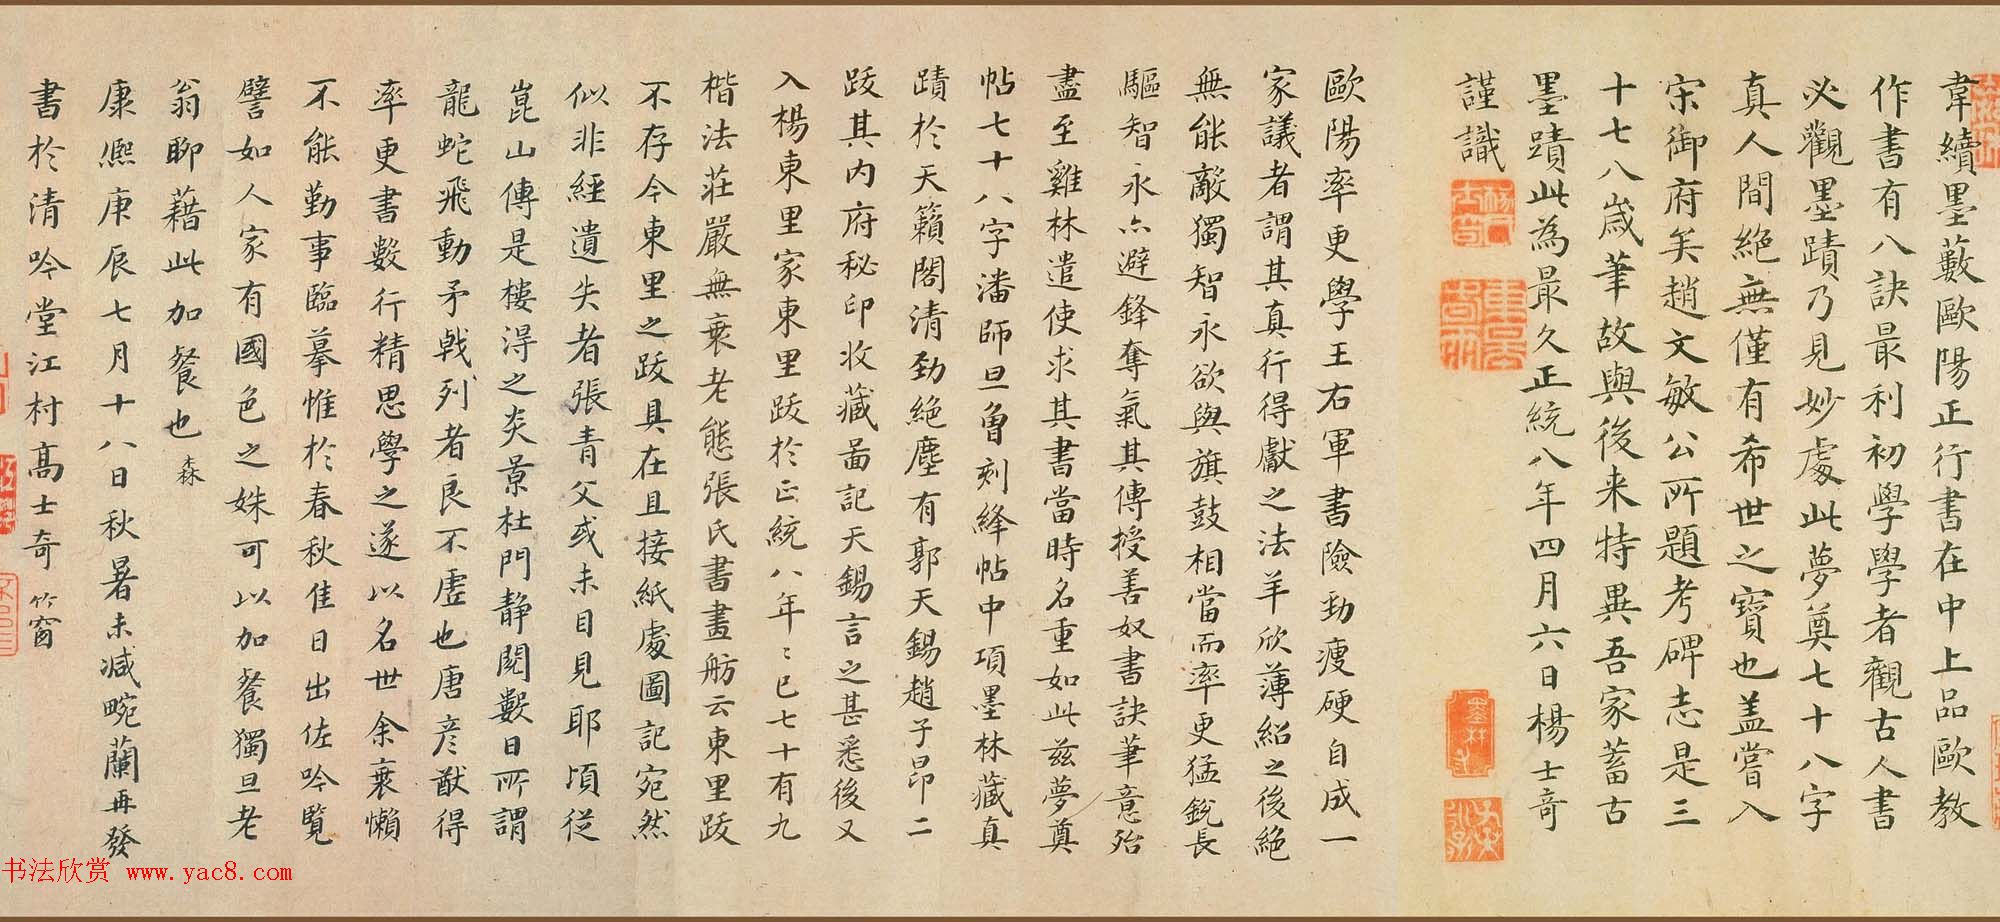 韋續墨藪歐陽正行書在中上品歐教
作書有八訣最利初學學者觀古人書
必觀墨蹟乃見妙處此夢奠七十八字
真人間絕無僅有希世之寶也蓋嘗入
宋御府矣趙文敏公所題考碑志是三
十七八歲筆故與後来特異吾家蓄古
墨蹟此為最久正統八年四月六日楊士奇
謹識
歐陽率更學王右軍書險勁瘦硬自成一
家議者謂其真行得獻之法羊欣薄紹之後絕
無能敵獨智永欲與旗鼓相當而率更猛銳長
驅智永亦避鋒奪氣其傳授善奴書訣筆意殆
盡至雞林遣使求其書當時名重如此茲夢奠
帖七十八字潘師旦曾刻絳帖中項墨林藏真
蹟於天籟閣清勁絕塵有郭天錫趙子昂二
跋其内府秘印收藏啚記天錫言之甚悉後又
入楊東里家東里跋於正統八年年已七十有九
楷法莊嚴無衰老態張氏書畫舫云東里跋
不存今東里之跋具在且接紙處圖記宛然
似非經遺失者張青父或未目見耶頃從
崑山傳是樓得之炎景杜門静閱數日所謂
龍蛇飛動矛戟列者良不虛也唐彦猷得
率更書數行精思學之遂以名世余衰懶
不能勤事臨摹惟於春秋佳日出佐吟覽
譬如人家有國色之姝可以加餐獨旦老
翁聊藉此加餐也 森
康熙庚辰七月十八日秋暑未減畹蘭再發
書於清吟堂江村高士奇 竹窗
书法欣赏 www.yac8.com